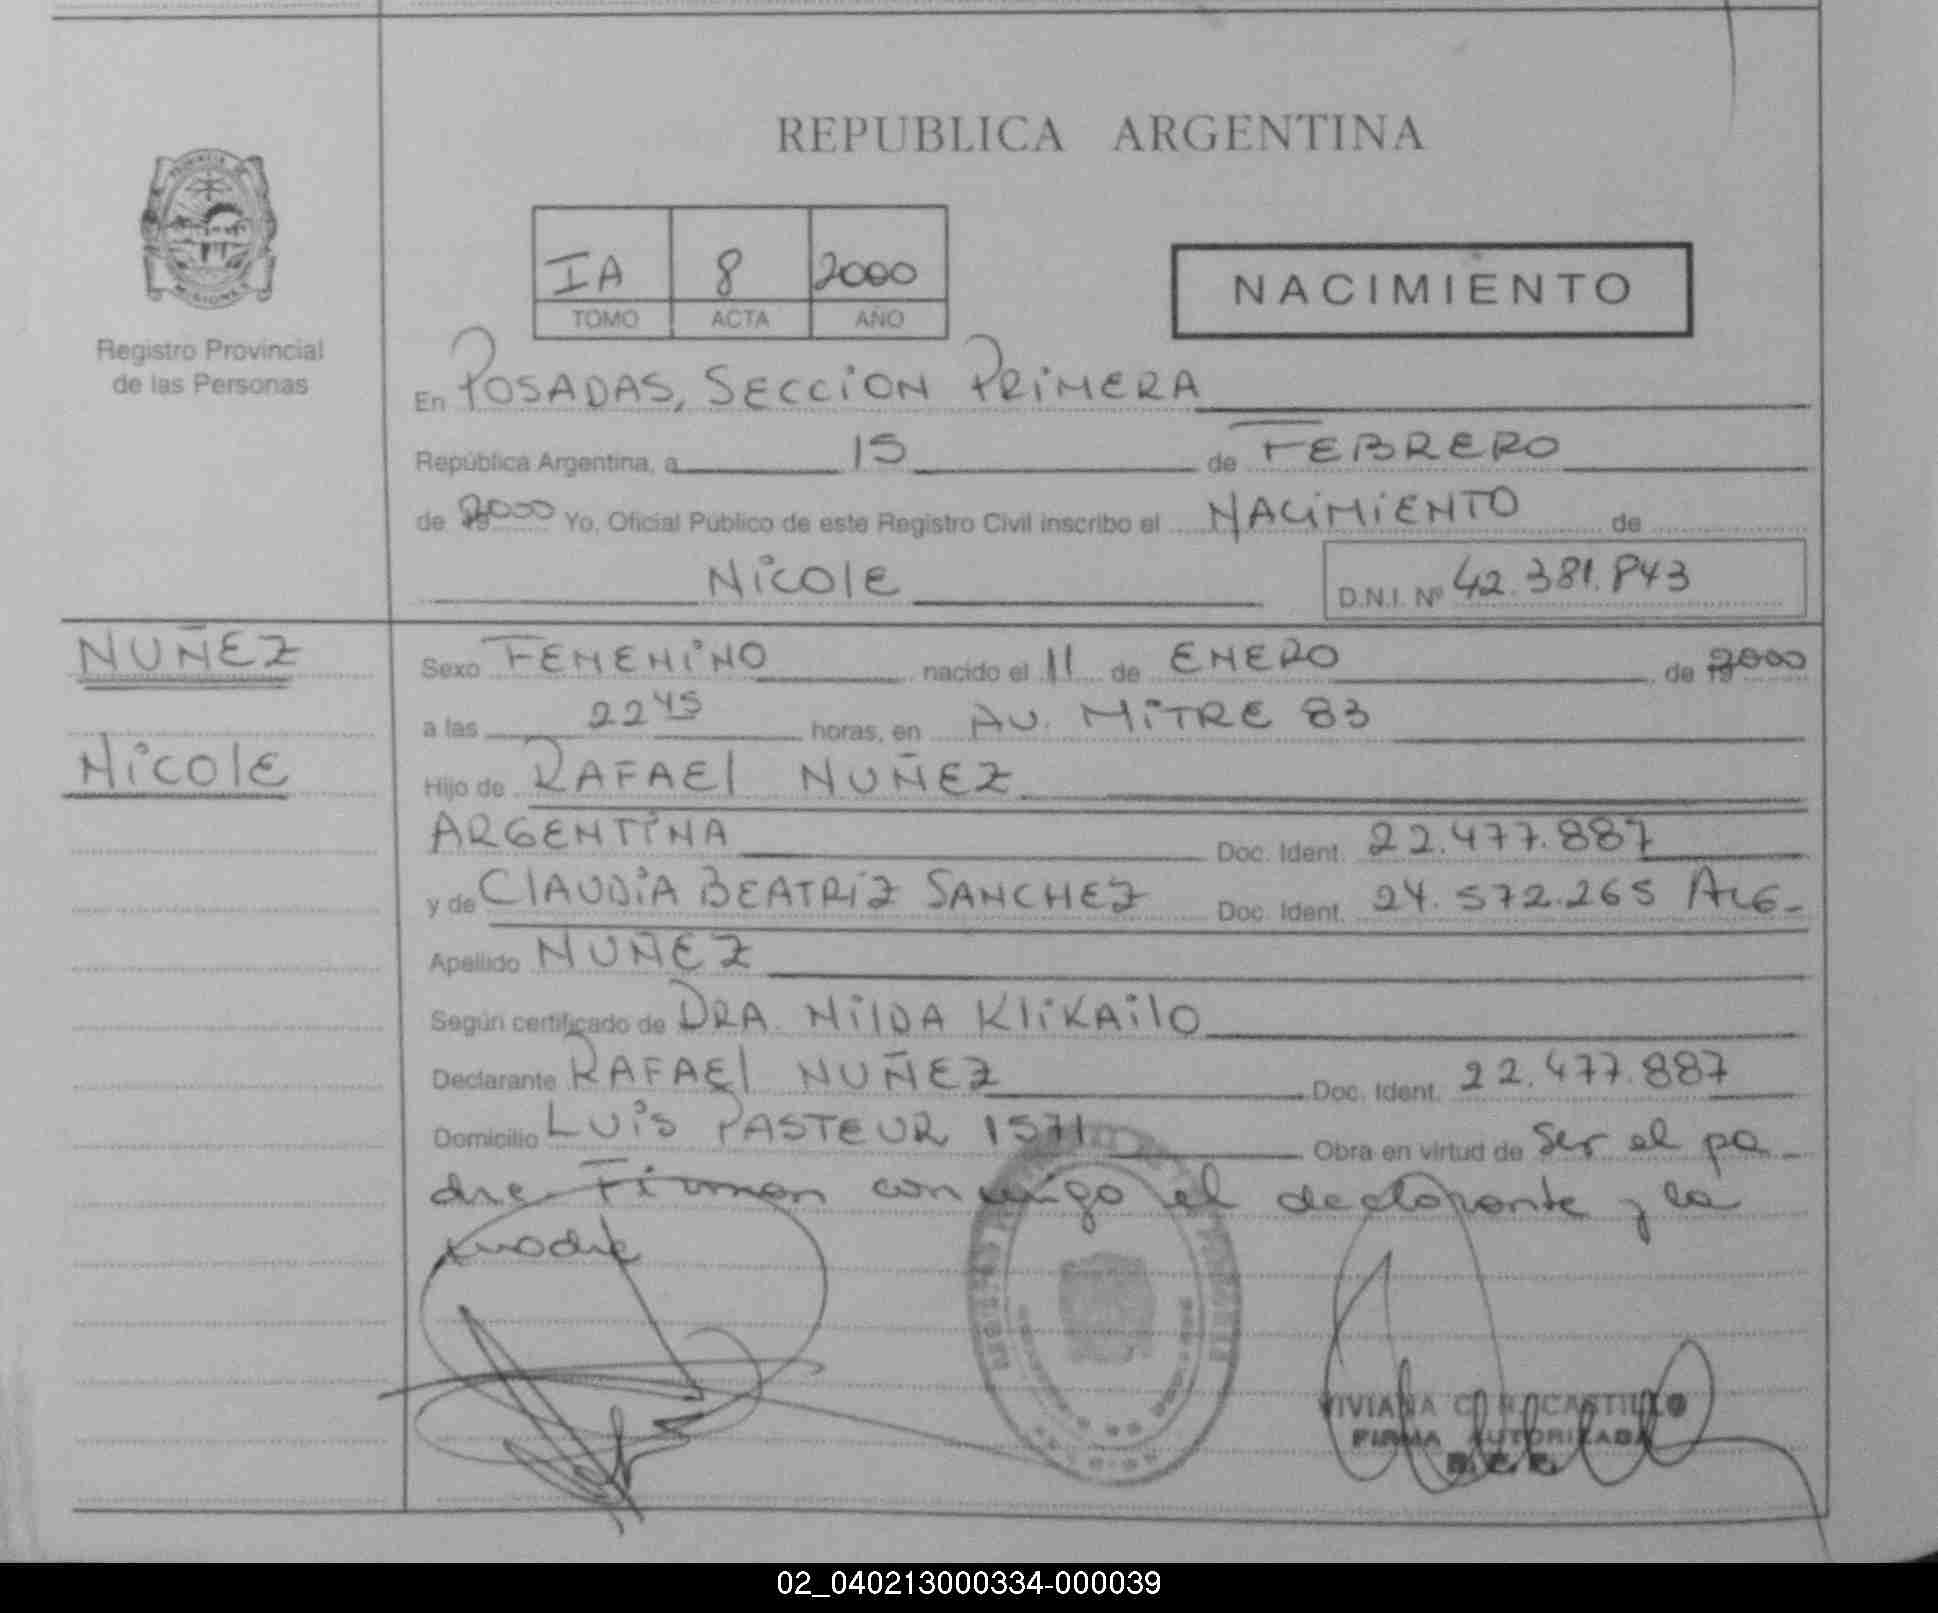 REPUBLICA ARGENTINA
PROVINCIA
MISIONES
Registro Provincial
de las Personas
IA 8 2000
TOMO ACTA AÑO
NACIMIENTO
En POSADAS, SECCION PRIMERA
República Argentina, a 15 de FEBRERO
de 2000 Yo, Oficial Público de este Registro Civil inscribo el NACIMIENTO de
NicolE
D.N.I. Nº 42.381.843
NUÑEZ
NicolE
Sexo FEMENINO nacido el 11 de ENERO de 2000
a las 22 45 horas, en AV. MITRE 83
Hijo de RAFAEl NUÑEZ
ARGENTINA Doc. Ident. 22.477.887
y de ClAUDIA BEATRIZ SANCHEZ Doc. Ident. 24.572.265 ARG-
Apellido NUÑEZ
Según certificado de DRA. NilDA KliKAilO
Declarante RAFAEl NUÑEZ Doc. Ident. 22.477.887
Domicilio LUIS PASTEUR 1571 Obra en virtud de ser el pa-
dre- Firman conmigo el declarante y la
madre
VIVIANA CASTILLO
FIRMA AUTORIZADA
02_040213000334-000039